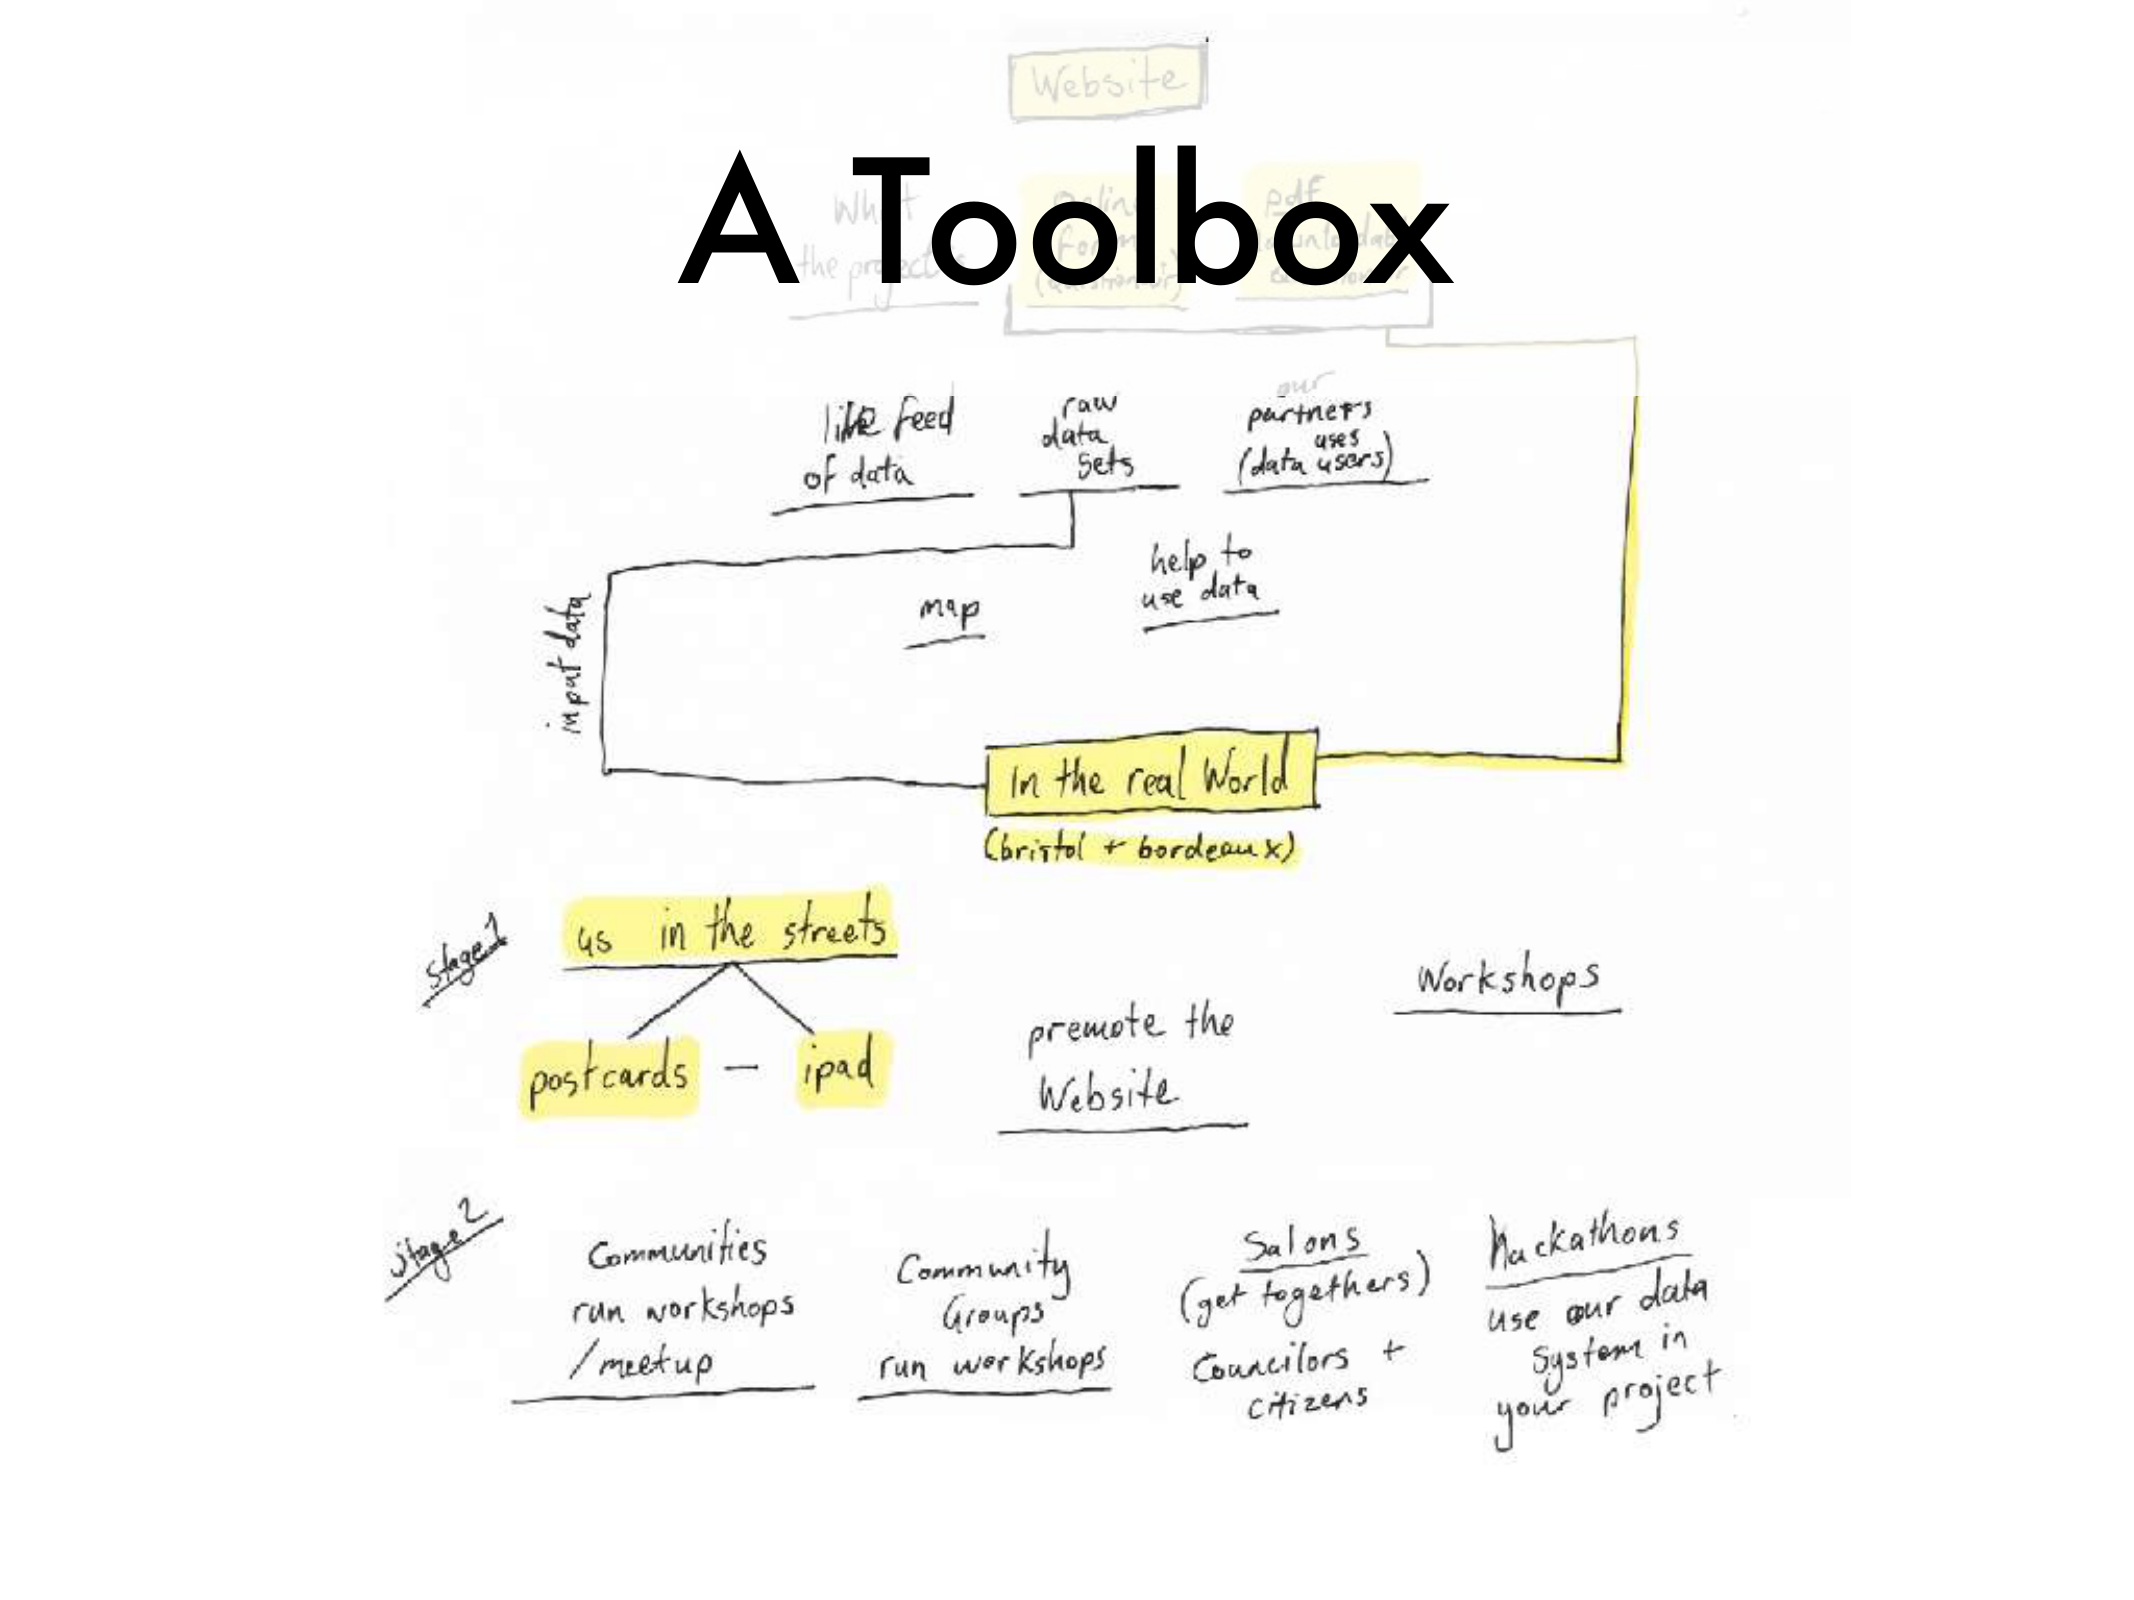 Website
A Toolbox
What
the project is
online
form
pdf
live feed
of data
raw
data
sets
our
partners
uses
(data users)
help to
use data
map
input data
In the real World
(bristol + bordeaux)
stage 1
us in the streets
postcards - ipad
premote the
Website
Workshops
stage 2
Communities
run workshops
/meetup
Community
Groups
run workshops
Salons
(get togethers)
Councilors +
citizens
hackathons
use our data
system in
your project